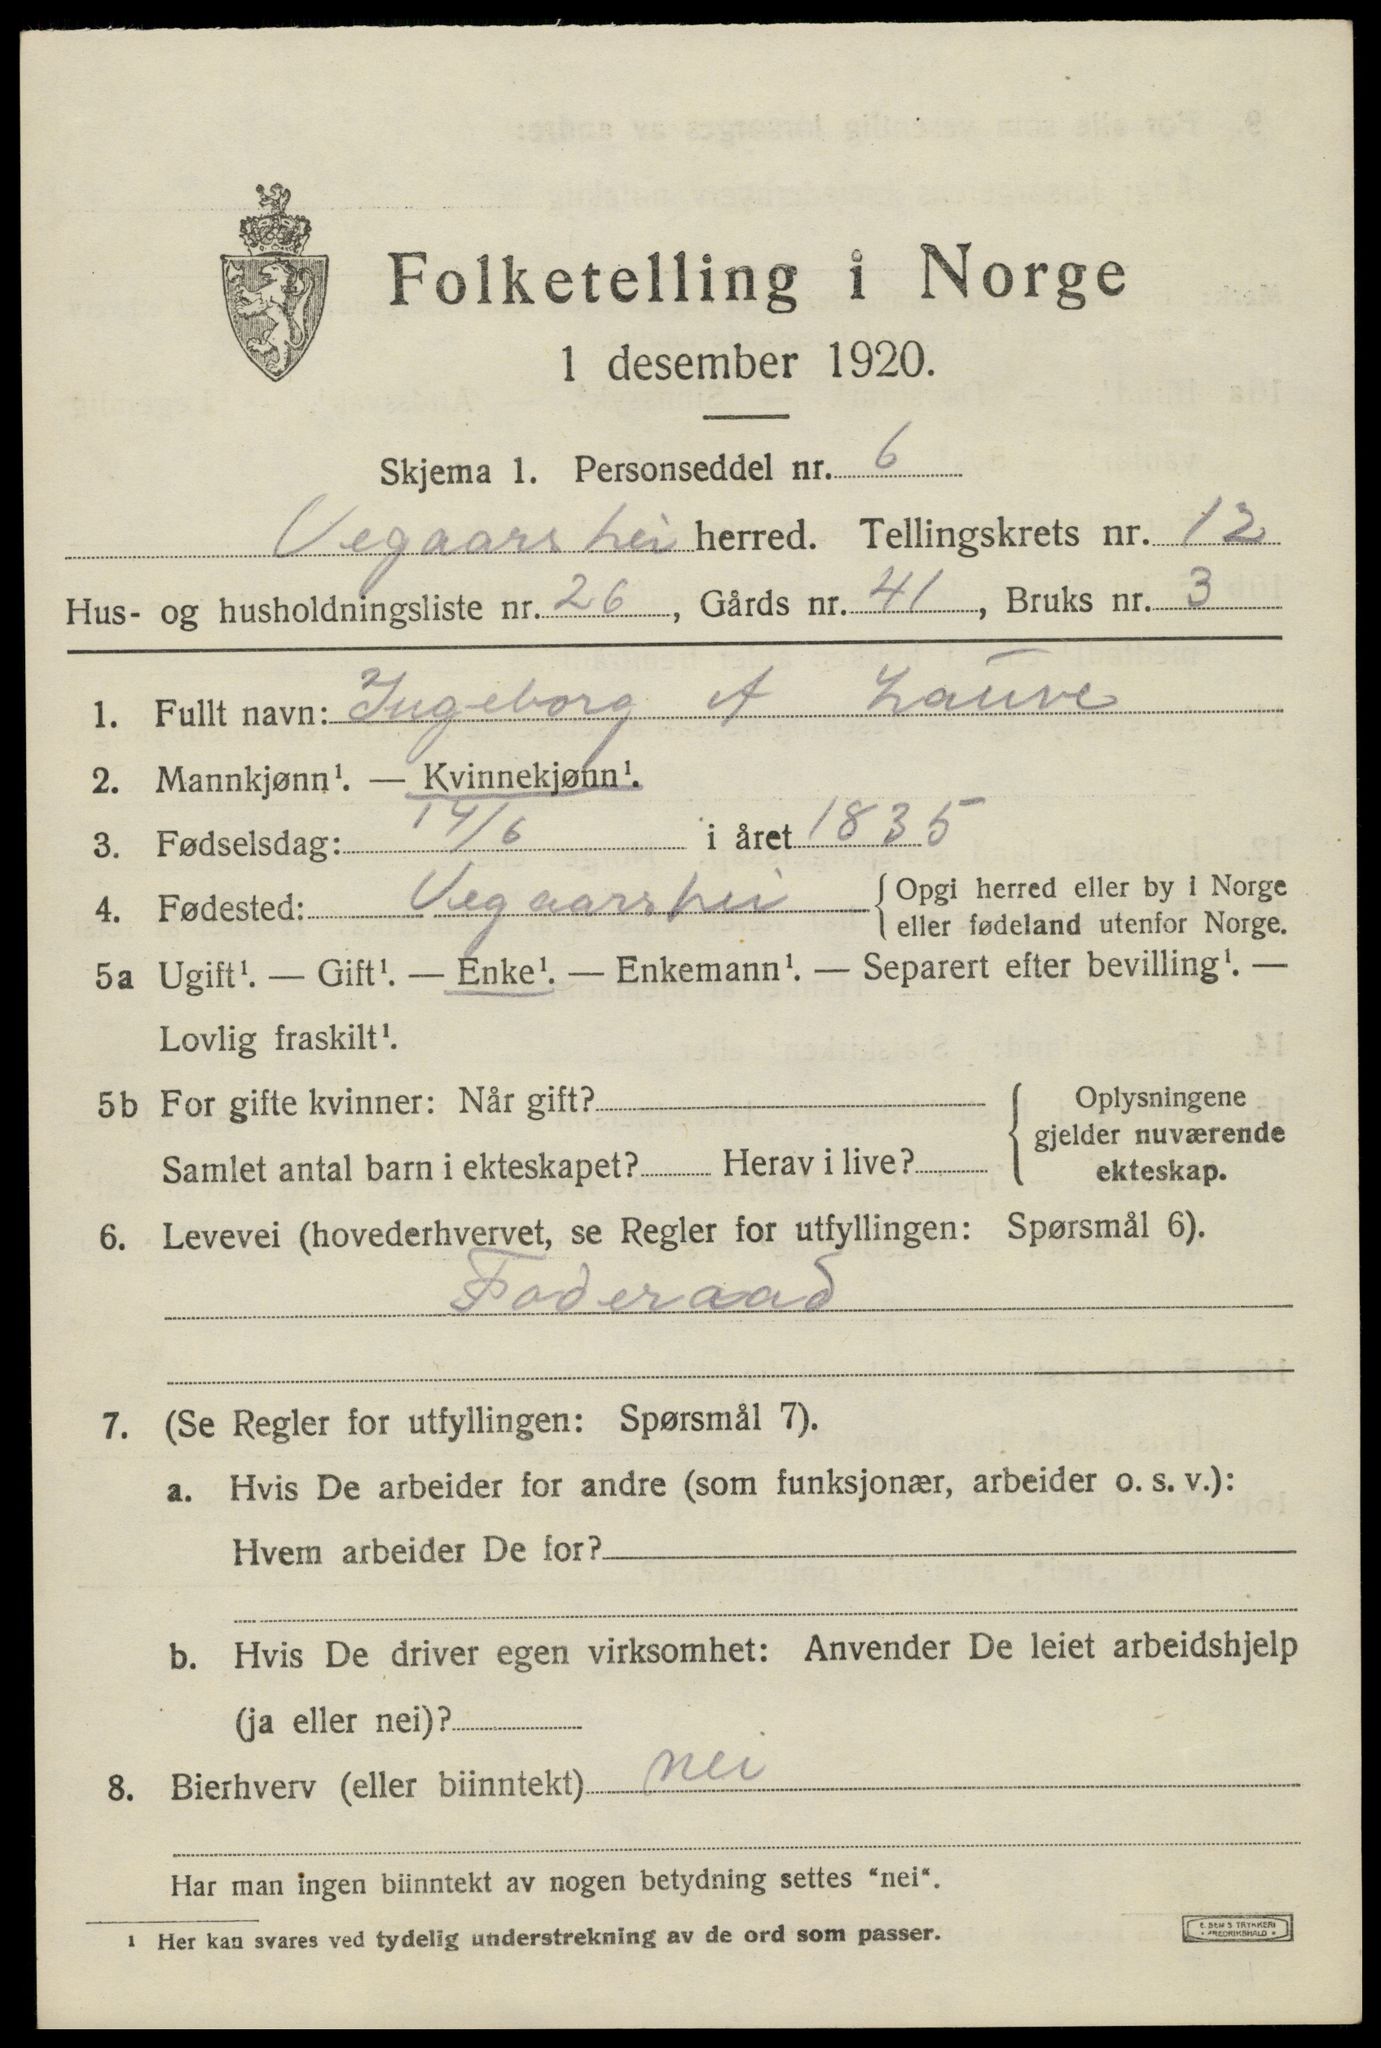 Folketelling i Norge
1 desember 1920.
Skjema 1. Personseddel nr. 6
Vegaarshei herred. Tellingskrets nr. 12
Hus- og husholdningsliste nr. 26, Gårds nr. 41, Bruks nr. 3
1. Fullt navn: Ingeborg A Lauve
2. Mannkjønn¹. — Kvinnekjønn¹.
3. Fødselsdag: 14/6 i året 1835
4. Fødested: Vegaarshei {Opgi herred eller by i Norge
eller fødeland utenfor Norge.
5a Ugift¹. — Gift¹. — Enke¹. — Enkemann¹. — Separert efter bevilling¹. —
Lovlig fraskilt¹.
5b For gifte kvinner: Når gift?
Samlet antal barn i ekteskapet? Herav i live?
{Oplysningene
gjelder nuværende
ekteskap.
6. Levevei (hovederhvervet, se Regler for utfyllingen: Spørsmål 6).
Foderaad
7. (Se Regler for utfyllingen: Spørsmål 7).
a. Hvis De arbeider for andre (som funksjonær, arbeider o. s. v.):
Hvem arbeider De for?
b. Hvis De driver egen virksomhet: Anvender De leiet arbeidshjelp
(ja eller nei)?
8. Bierhverv (eller biinntekt) nei
Har man ingen biinntekt av nogen betydning settes “nei“.
¹ Her kan svares ved tydelig understrekning av de ord som passer.
E. SEM'S TRYKKERI
• FREDRIKSHALD •